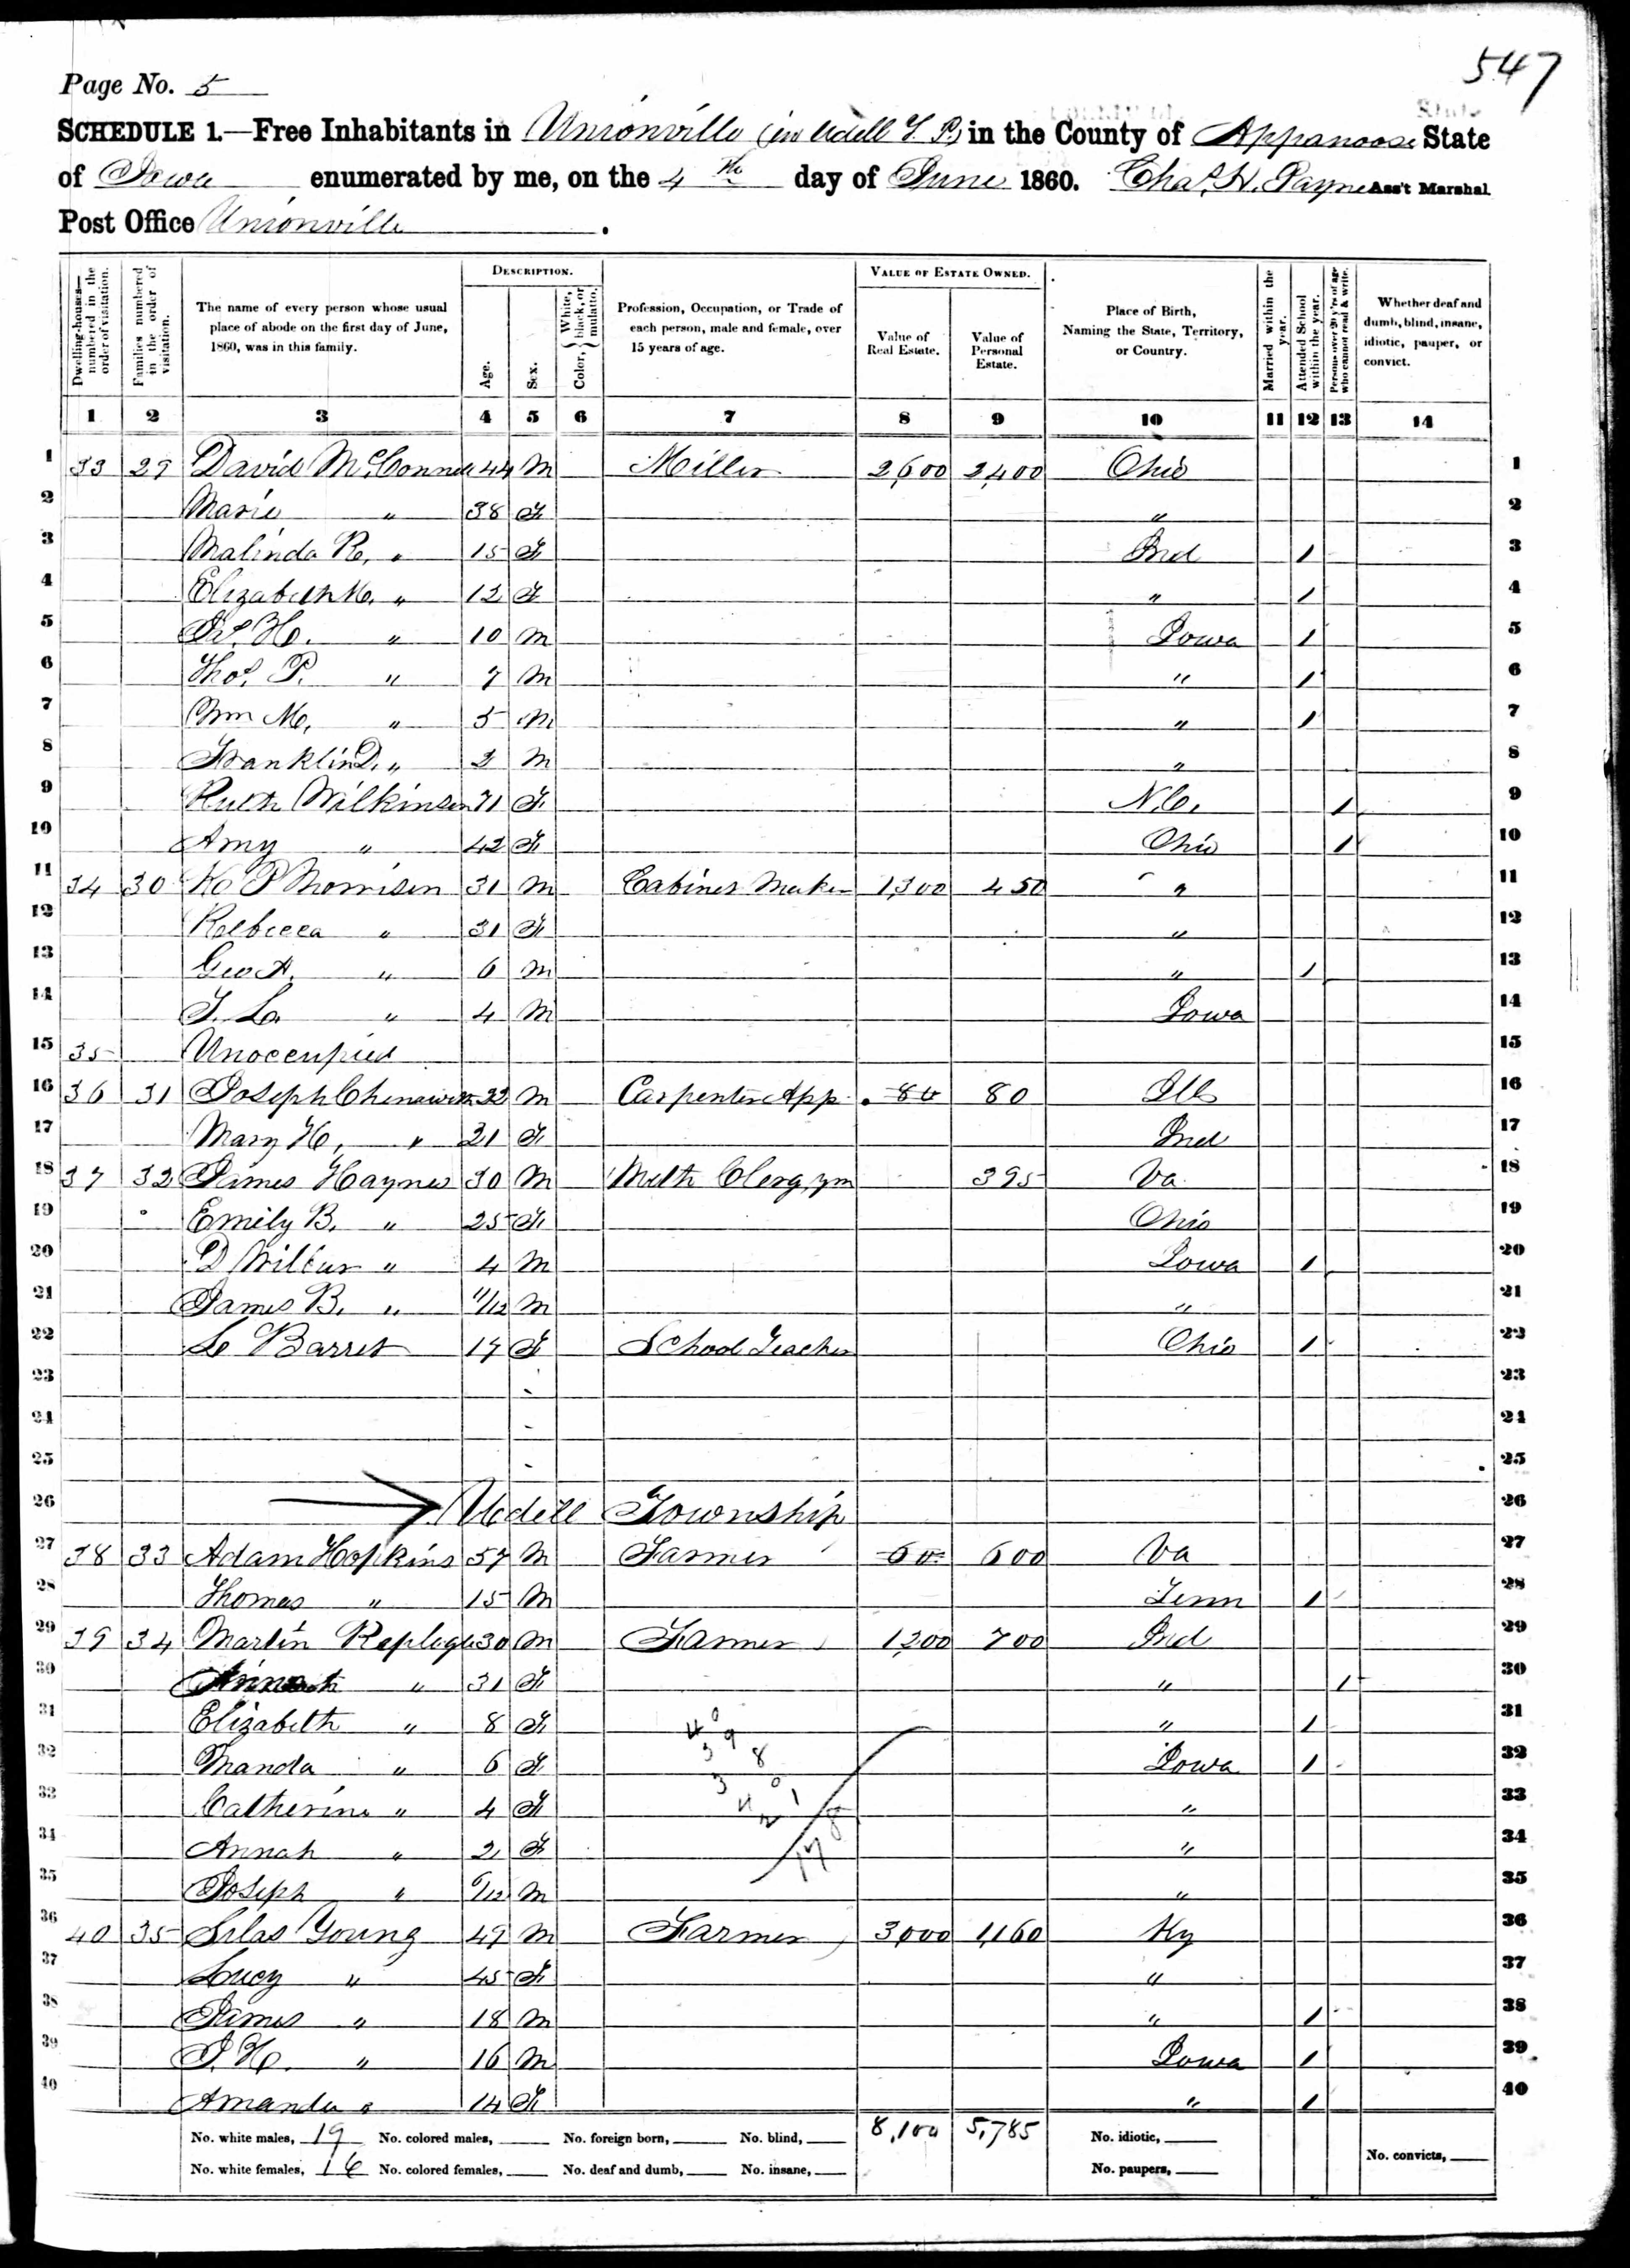 547
Page No. 5
SCHEDULE 1.—Free Inhabitants in Unionville (in Udell T. P.) in the County of Appanoose State
of Iowa enumerated by me, on the 4th day of June 1860. Chas. H. Payne Ass't Marshal
Post Office Unionville.
Dwelling-houses—numbered in the order of visitation.
Families numbered in the order of visitation.
The name of every person whose usual place of abode on the first day of June, 1860, was in this family.
DESCRIPTION.
Age.
Sex.
Color, { White, black, or mulatto.
Profession, Occupation, or Trade of each person, male and female, over 15 years of age.
VALUE OF ESTATE OWNED.
Value of Real Estate.
Value of Personal Estate.
Place of Birth, Naming the State, Territory, or Country.
Married within the year.
Attended School within the year.
Persons over 20 y'rs of age who cannot read & write.
Whether deaf and dumb, blind, insane, idiotic, pauper, or convict.
1 2 3 4 5 6 7 8 9 10 11 12 13 14
1 33 29 David McConnell 44 M Miller 2,600 2,400 Ohio 1
2 Maria " 38 F " 2
3 Malinda R. " 15 F Ind 1 3
4 Elizabeth M. " 12 F " 1 4
5 H. " 10 M Iowa 1 5
6 Thos. P. " 7 M " 1 6
7 Wm M. " 5 M " 1 7
8 Franklin D. " 2 M " 8
9 Ruth Wilkinson 71 F N.C. 1 9
10 Amy " 42 F Ohio 1 10
11 34 30 P Morrison 31 M Cabinet Maker 1,300 450 " 11
12 Rebecca " 31 F " 12
13 Geo A. " 6 M " 1 13
14 " 4 M Iowa 14
15 35 Unoccupied 15
16 36 31 Joseph Chenawith 22 M Carpenter App. 80 80 Ills 16
17 Mary H. " 21 F Ind 17
18 37 32 James Haynes 30 M Meth Clergym 395 Va 18
19 Emily B. " 25 F Ohio 19
20 D Wilbur " 4 M Iowa 1 20
21 James B. " 11/12 M " 21
22 Barret 17 F School Teacher Ohio 1 22
23 23
24 24
25 25
26 Udell Township 26
27 38 33 Adam Hopkins 57 M Farmer 600 Va 27
28 Thomas " 15 M Tenn 1 28
29 39 34 Martin Replogle 30 M Farmer 1,200 700 Ind 29
30 " 31 F " 1 30
31 Elizabeth " 8 F " 1 31
32 Manda " 6 F Iowa 1 32
33 Catherine " 4 F " 33
34 Annah " 2 F " 34
35 Joseph " 6/12 M " 35
36 40 35 Silas Young 49 M Farmer 3,000 1,160 Ky 36
37 Lucy " 45 F " 37
38 James " 18 M " 1 38
39 J. H. " 16 M Iowa 1 39
40 Amanda " 14 F " 1 40
No. white males, 19 No. colored males, No. foreign born, No. blind, 8,100 5,785 No. idiotic,
No. white females, 16 No. colored females, No. deaf and dumb, No. insane, No. paupers, No. convicts,